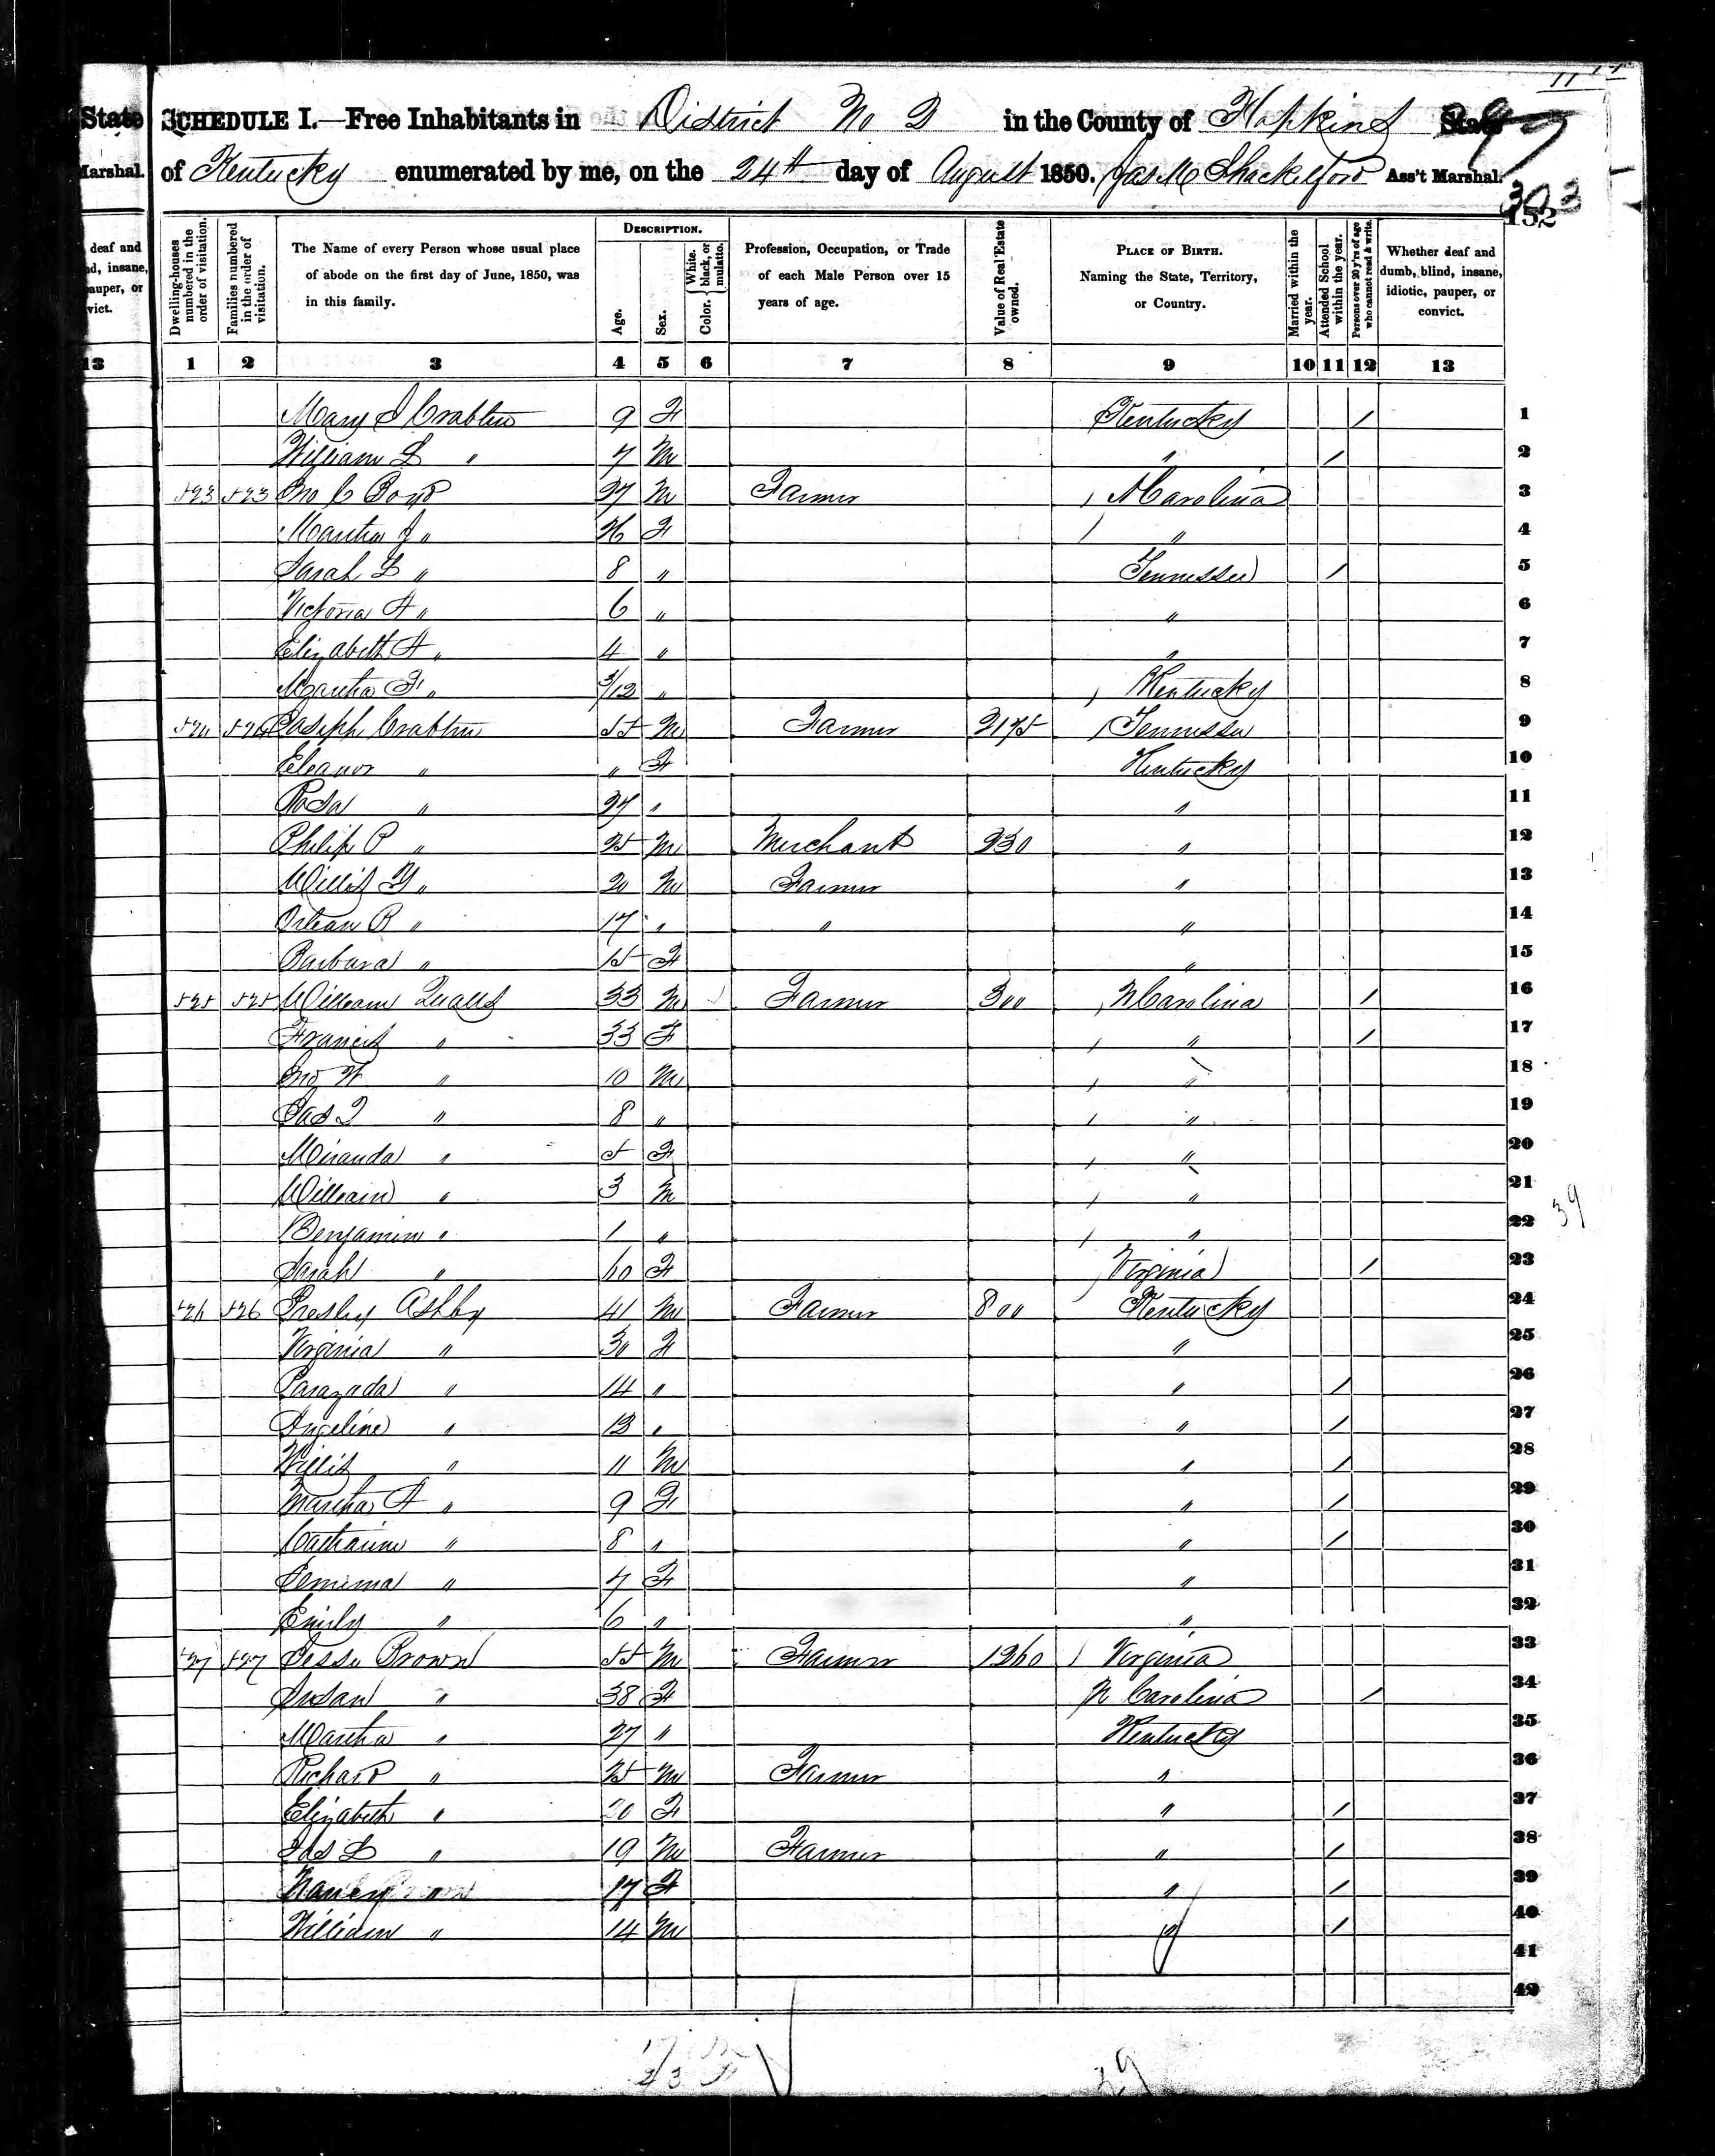 State
Marshal.
deaf and
nd, insane,
pauper, or
vict.
13
SCHEDULE I.—Free Inhabitants in District No 2 in the County of Hopkins State
of Kentucky enumerated by me, on the 24th day of August 1850. Jas M Shackelford Ass't Marshal.
303
152
Dwelling-houses numbered in the order of visitation.
Families numbered in the order of visitation.
The Name of every Person whose usual place of abode on the first day of June, 1850, was in this family.
DESCRIPTION.
Age.
Sex.
Color. { White, black, or mulatto.
Profession, Occupation, or Trade of each Male Person over 15 years of age.
Value of Real Estate owned.
PLACE OF BIRTH. Naming the State, Territory, or Country.
Married within the year.
Attended School within the year.
Persons over 20 y'rs of age who cannot read & write.
Whether deaf and dumb, blind, insane, idiotic, pauper, or convict.
1 2 3 4 5 6 7 8 9 10 11 12 13
Crabtree 9 F Kentucky / 1
William L " 7 M " / 2
523 523 Jno C Boyd 27 M Farmer N Carolina 3
Martha J " 26 F " 4
Sarah L " 8 " Tennessee / 5
Victoria A " 6 " " 6
Elizabeth A " 4 " " 7
Martha F " 3/12 " Kentucky 8
524 524 Joseph Crabtree 55 M Farmer 2175 Tennessee 9
Eleanor " " F Kentucky 10
Rosa " 27 " " 11
Philip P " 25 M Merchant 230 " 12
Willis G " 20 M Farmer " 13
Orlean R " 17 " " " 14
Barbara " 15 F " 15
525 525 William Qualls 33 M Farmer 300 N Carolina / 16
Francis " 33 F " / 17
Jno W " 10 M " 18
Jas " 8 " " 19
Miranda " 5 F " 20
William " 3 M " 21
Benjamin " 1 " " 22
Sarah " 60 F Virginia / 23
526 526 Presley Ashby 41 M Farmer 800 Kentucky 24
Virginia " 30 F " 25
Parazada " 14 " " / 26
Angeline " 13 " " / 27
Willis " 11 M " / 28
Martha A " 9 F " / 29
Catharine " 8 " " / 30
Jemima " 7 F " 31
Emily " 6 " " 32
527 527 Jesse Brown 55 M Farmer 1260 Virginia 33
Susan " 38 F N Carolina / 34
Martha " 27 " Kentucky 35
Richard " 25 M Farmer " 36
Elizabeth " 20 F " / 37
Jas L " 19 M Farmer " / 38
Nancy " 17 F " / 39
William " 14 M " / 40
41
42
39
29